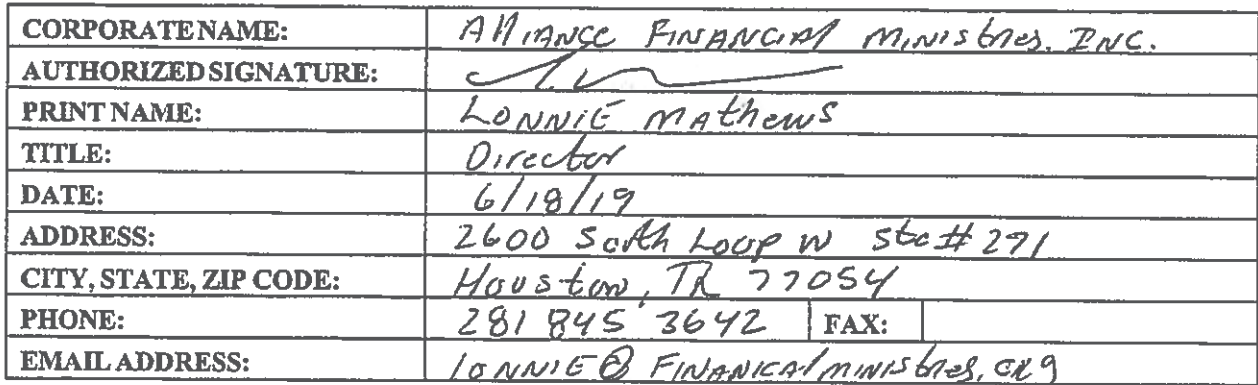 CORPORATE NAME: Alliance Financial Ministries, INC.
AUTHORIZED SIGNATURE:
PRINT NAME: LONNIE Mathews
TITLE: Director
DATE: 6/18/19
ADDRESS: 2600 South Loop W Ste# 271
CITY, STATE, ZIP CODE: Houston, TX 77054
PHONE: 281 845 3642 FAX:
EMAIL ADDRESS: lonnie@Finanicalministries.org